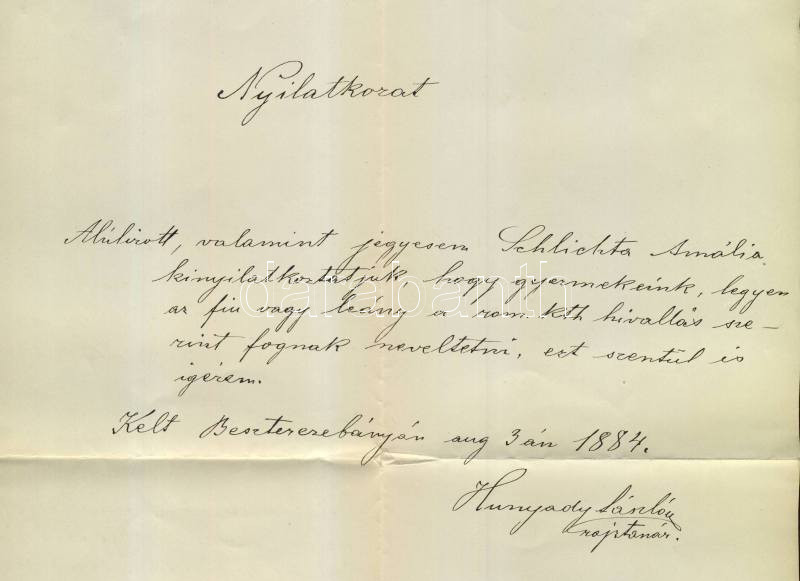 Nyilatkozat
Alúlírott, valamint jegyesem Schlichta Amália
kinyilatkoztatjuk, hogy gyermekeink, legyen
az fiú vagy leány a rom. kath hivallás sze-
rint fognak neveltetni, ezt szentül is
igérem.
Kelt Beszterczebányán aug 3án 1884.
Hunyady László
rajztanár.
darabanth